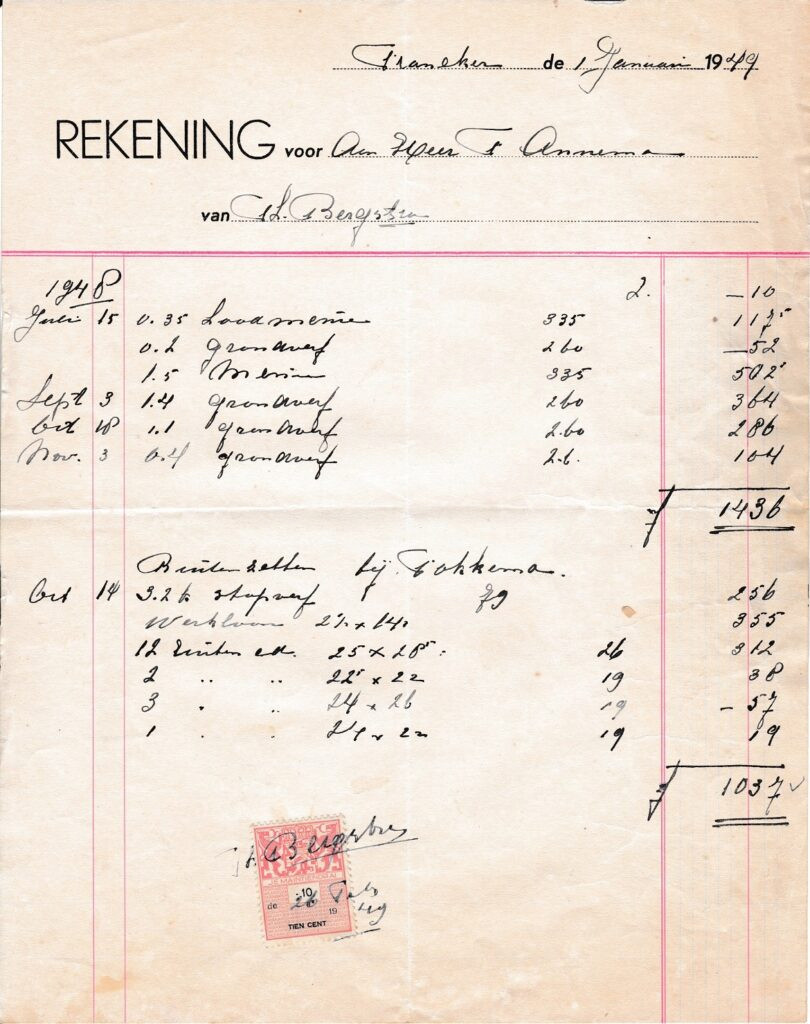 Franeker de 1 Januari 1949
REKENING voor Aan Heer F Annema
van H. Bergstra
1948 2. —10
Juli 15 0.35 Loodmenie 335 117⁵
0.2 grondverf 260 —52
1.5 Menie 335 502⁵
Sept 3 1.4 grondverf 260 364
Oct 18 1.1 grondverf 260 286
Nov. 3 0.4 grondverf 2.6. 104
1436
Ruiten zetten bij Fokkema.
Oct 14 3.2 k stopverf 79 256
Werkloon 2½ x 140 355
12 Ruiten ad. 25 x 28⁵ 26 312
2 " " 22⁵ x 22 19 38
3 " " 24 x 26 19 - 57
1 " " 24 x 22 19 19
1037
Bergstra
JE MAINTIENDRAI
10
de 26 Feb 1949
TIEN CENT